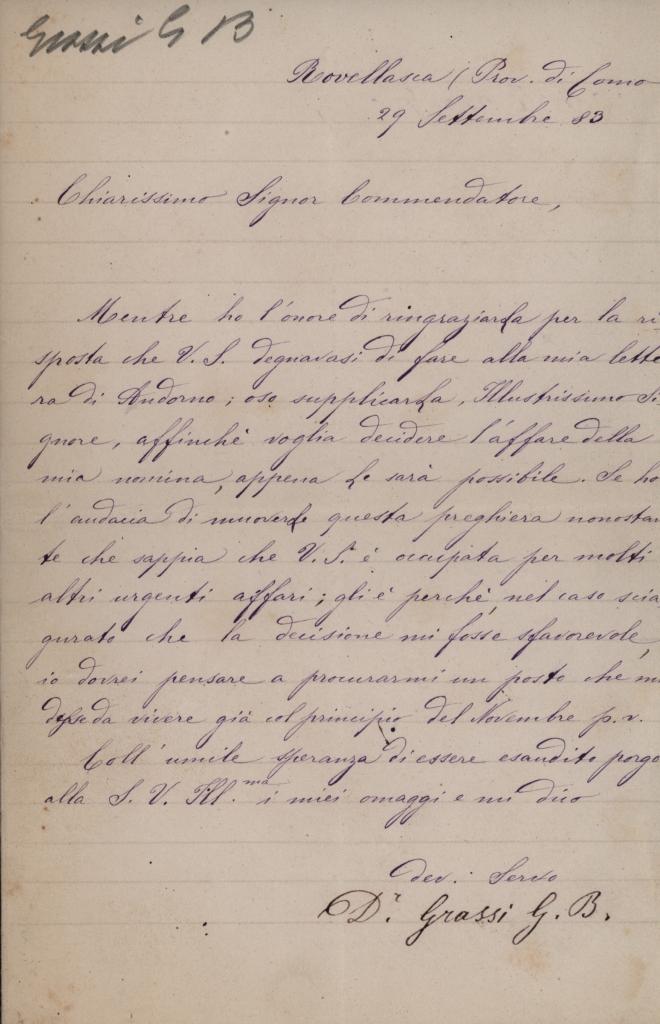 Grassi G B
Rovellasca (Prov. di Como
29 Settembre 83
Chiarissimo Signor Commendatore,
Mentre ho l'onore di ringraziarLa per la ri
sposta che V. S. degnavasi di fare alla mia lette
ra di Andorno; oso supplicarLa, Illustrissimo Si
gnore, affinchè voglia decidere l'affare della
mia nomina, appena Le sarà possibile. Se ho
l'audacia di muoverLe questa preghiera nonostan
te che sappia che V. S. è occupata per molti
altri urgenti affari; gli è perchè, nel caso scia
gurato che la decisione mi fosse sfavorevole,
io dovrei pensare a procurarmi un posto che mi
desse da vivere già col principio del Novembre p. v.
Coll'umile speranza di essere esaudito porgo
alla S. V. Ill.ma i miei omaggi e mi dico
dev. Servo
Dr. Grassi G. B.